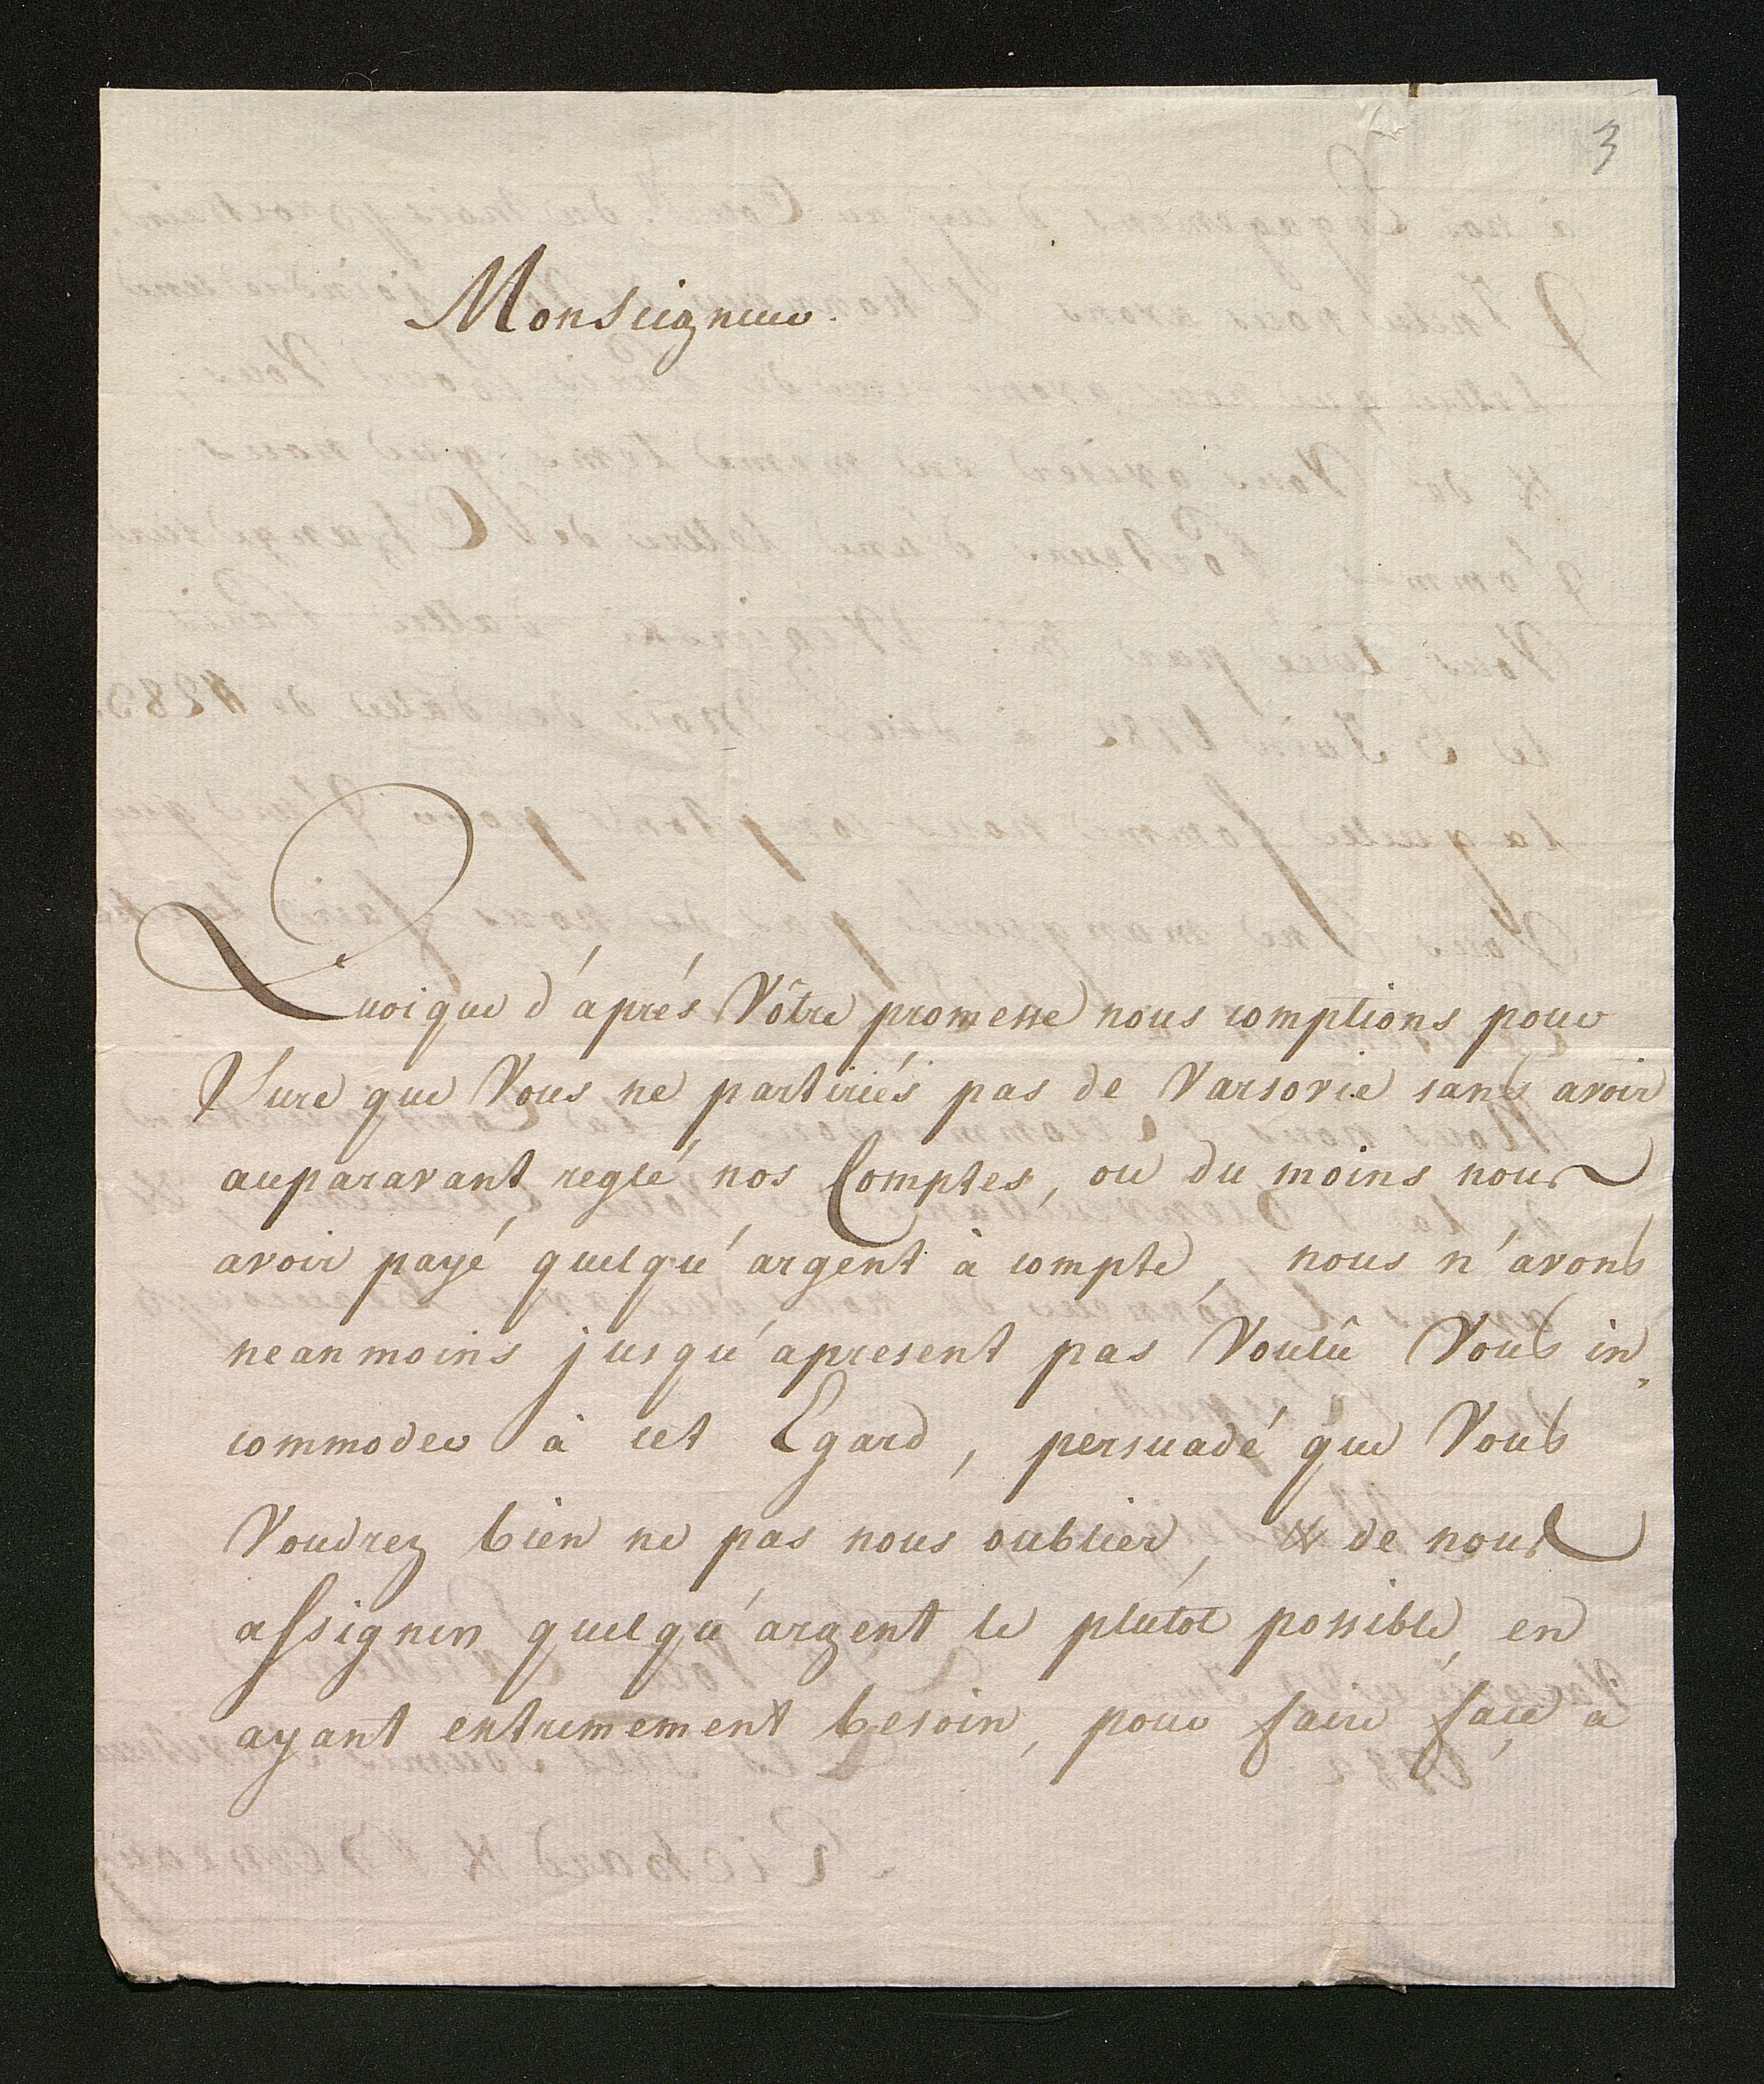 3
Monseigneur.
Quoique d'aprés Vôtre promesse nous comptions pour
Sure que Vous ne partiriés pas de Varsovie sans avoir
auparavant reglé nos Comptes, ou du moins nous
avoir payé quelqu'argent à compte, nous n'avons
neanmoins jusqu'apresent pas Voulû Vous in„
commoder à cet Egard, persuadé que Vous
Voudrez bien ne pas nous oublier, & de nous
assigner quelqu'argent le plutot possible, en
ayant extrememment besoin, pour faire face à